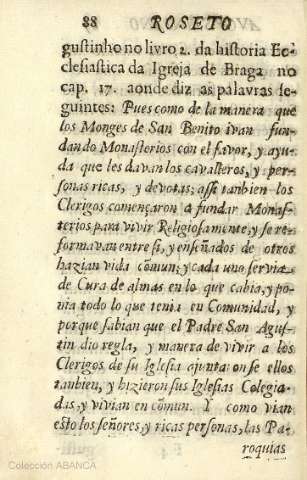 88 ROSETO
gustinho no livro 2. da historia Ec-
clesiastica da Igreja de Braga no
cap. 17. aonde diz as palavras se-
guintes: Pues como de la manera que
los Monges de San Benito ivan fun-
dando Monasterios con el favor, y ayu-
da que les davan los cavalleros, y per-
sonas ricas, y devotas; assi tanbien los
Clerigos començaron a fundar Monas-
terios para vivir Religiosamente, y se re-
formavan entre si, y enseñados de otros
hazian vida cõmun; y cada uno servia
de Cura de almas en lo que cabia, y po-
nia todo lo que tenia en Comunidad, y
porque sabian que el Padre San Agus-
tin dio regla, y manera de vivir a los
Clerigos de su Iglesia ajuntaronse ellos
tanbien, y hizieron sus Iglesias Colegia-
das, y vivian en cõmun. Y como vian
esto los señores, y ricas personas, las Pa-
roquias
Colección ABANCA